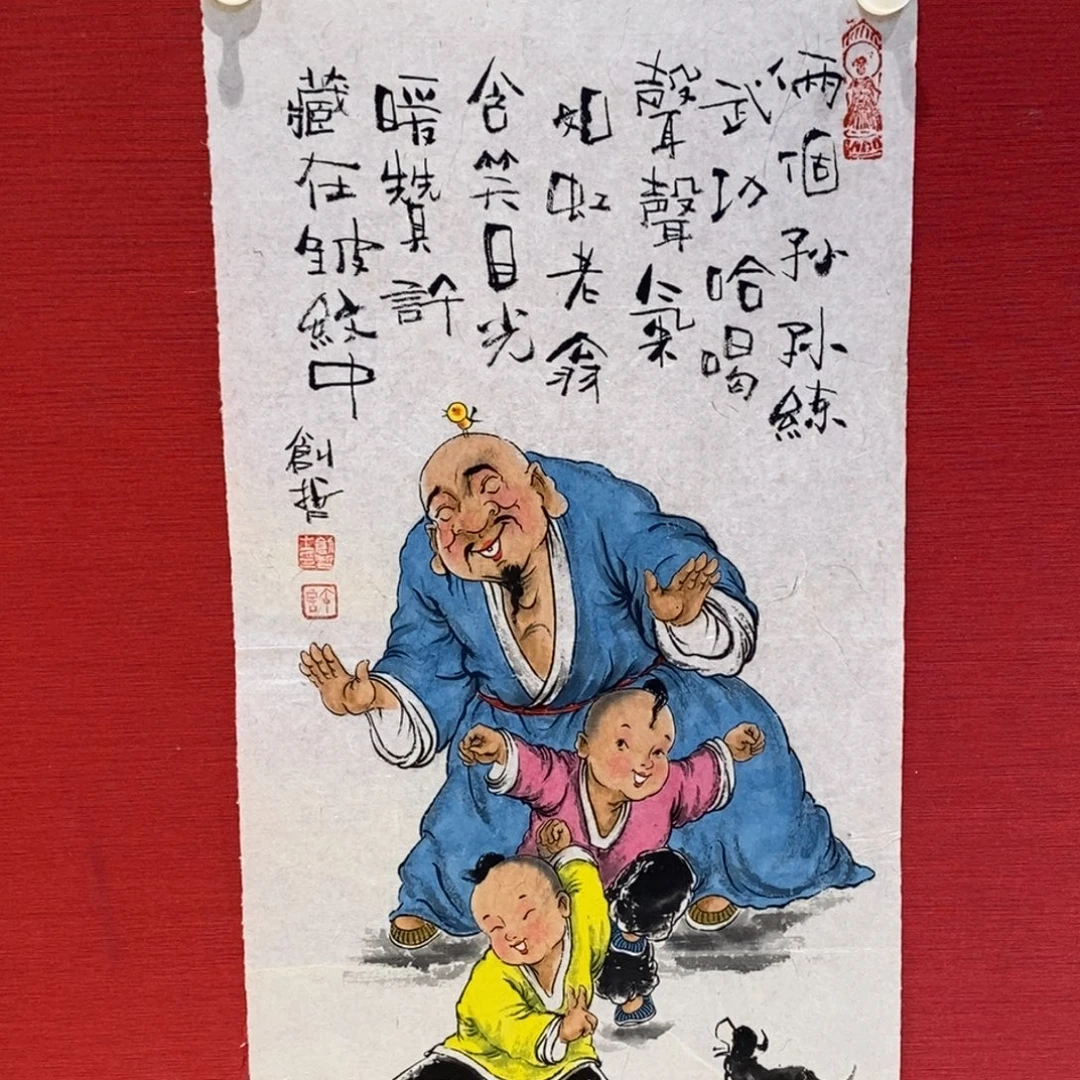 倆個孙孙練
武功哈喝
聲聲氣
如虹老翁
含笑目光
暖贊許
藏在皱紋中
創哲